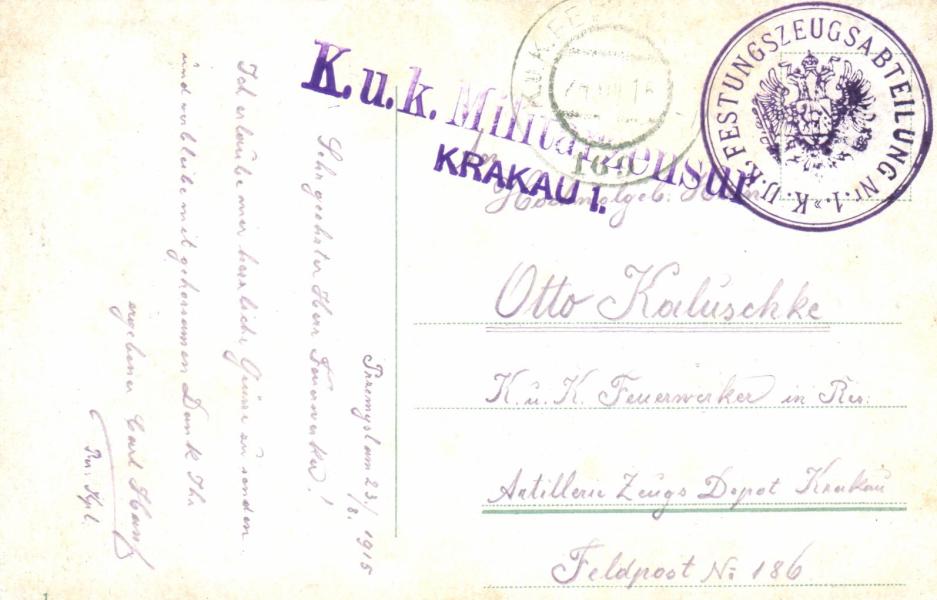 K.u.k. Militärzensur
KRAKAU 1.
K.U.K. FESTUNGSZEUGSABTEILUNG Nr. 1.
K.u.K. FE
16
164
Hochwolgeb. Herrn
Otto Kaluschke
K. u. K. Feuerwerker in Res:
Artillerie Zeugs Depot Krakau
Feldpost No 186
Przemysl am 23/8. 1915
Sehr geehrter Herr Feuerwerker!
Ich erlaube mir herzliche Grüsse zu senden
und verbleibe mit gehorsamen Dank Ihr
ergebener Carl